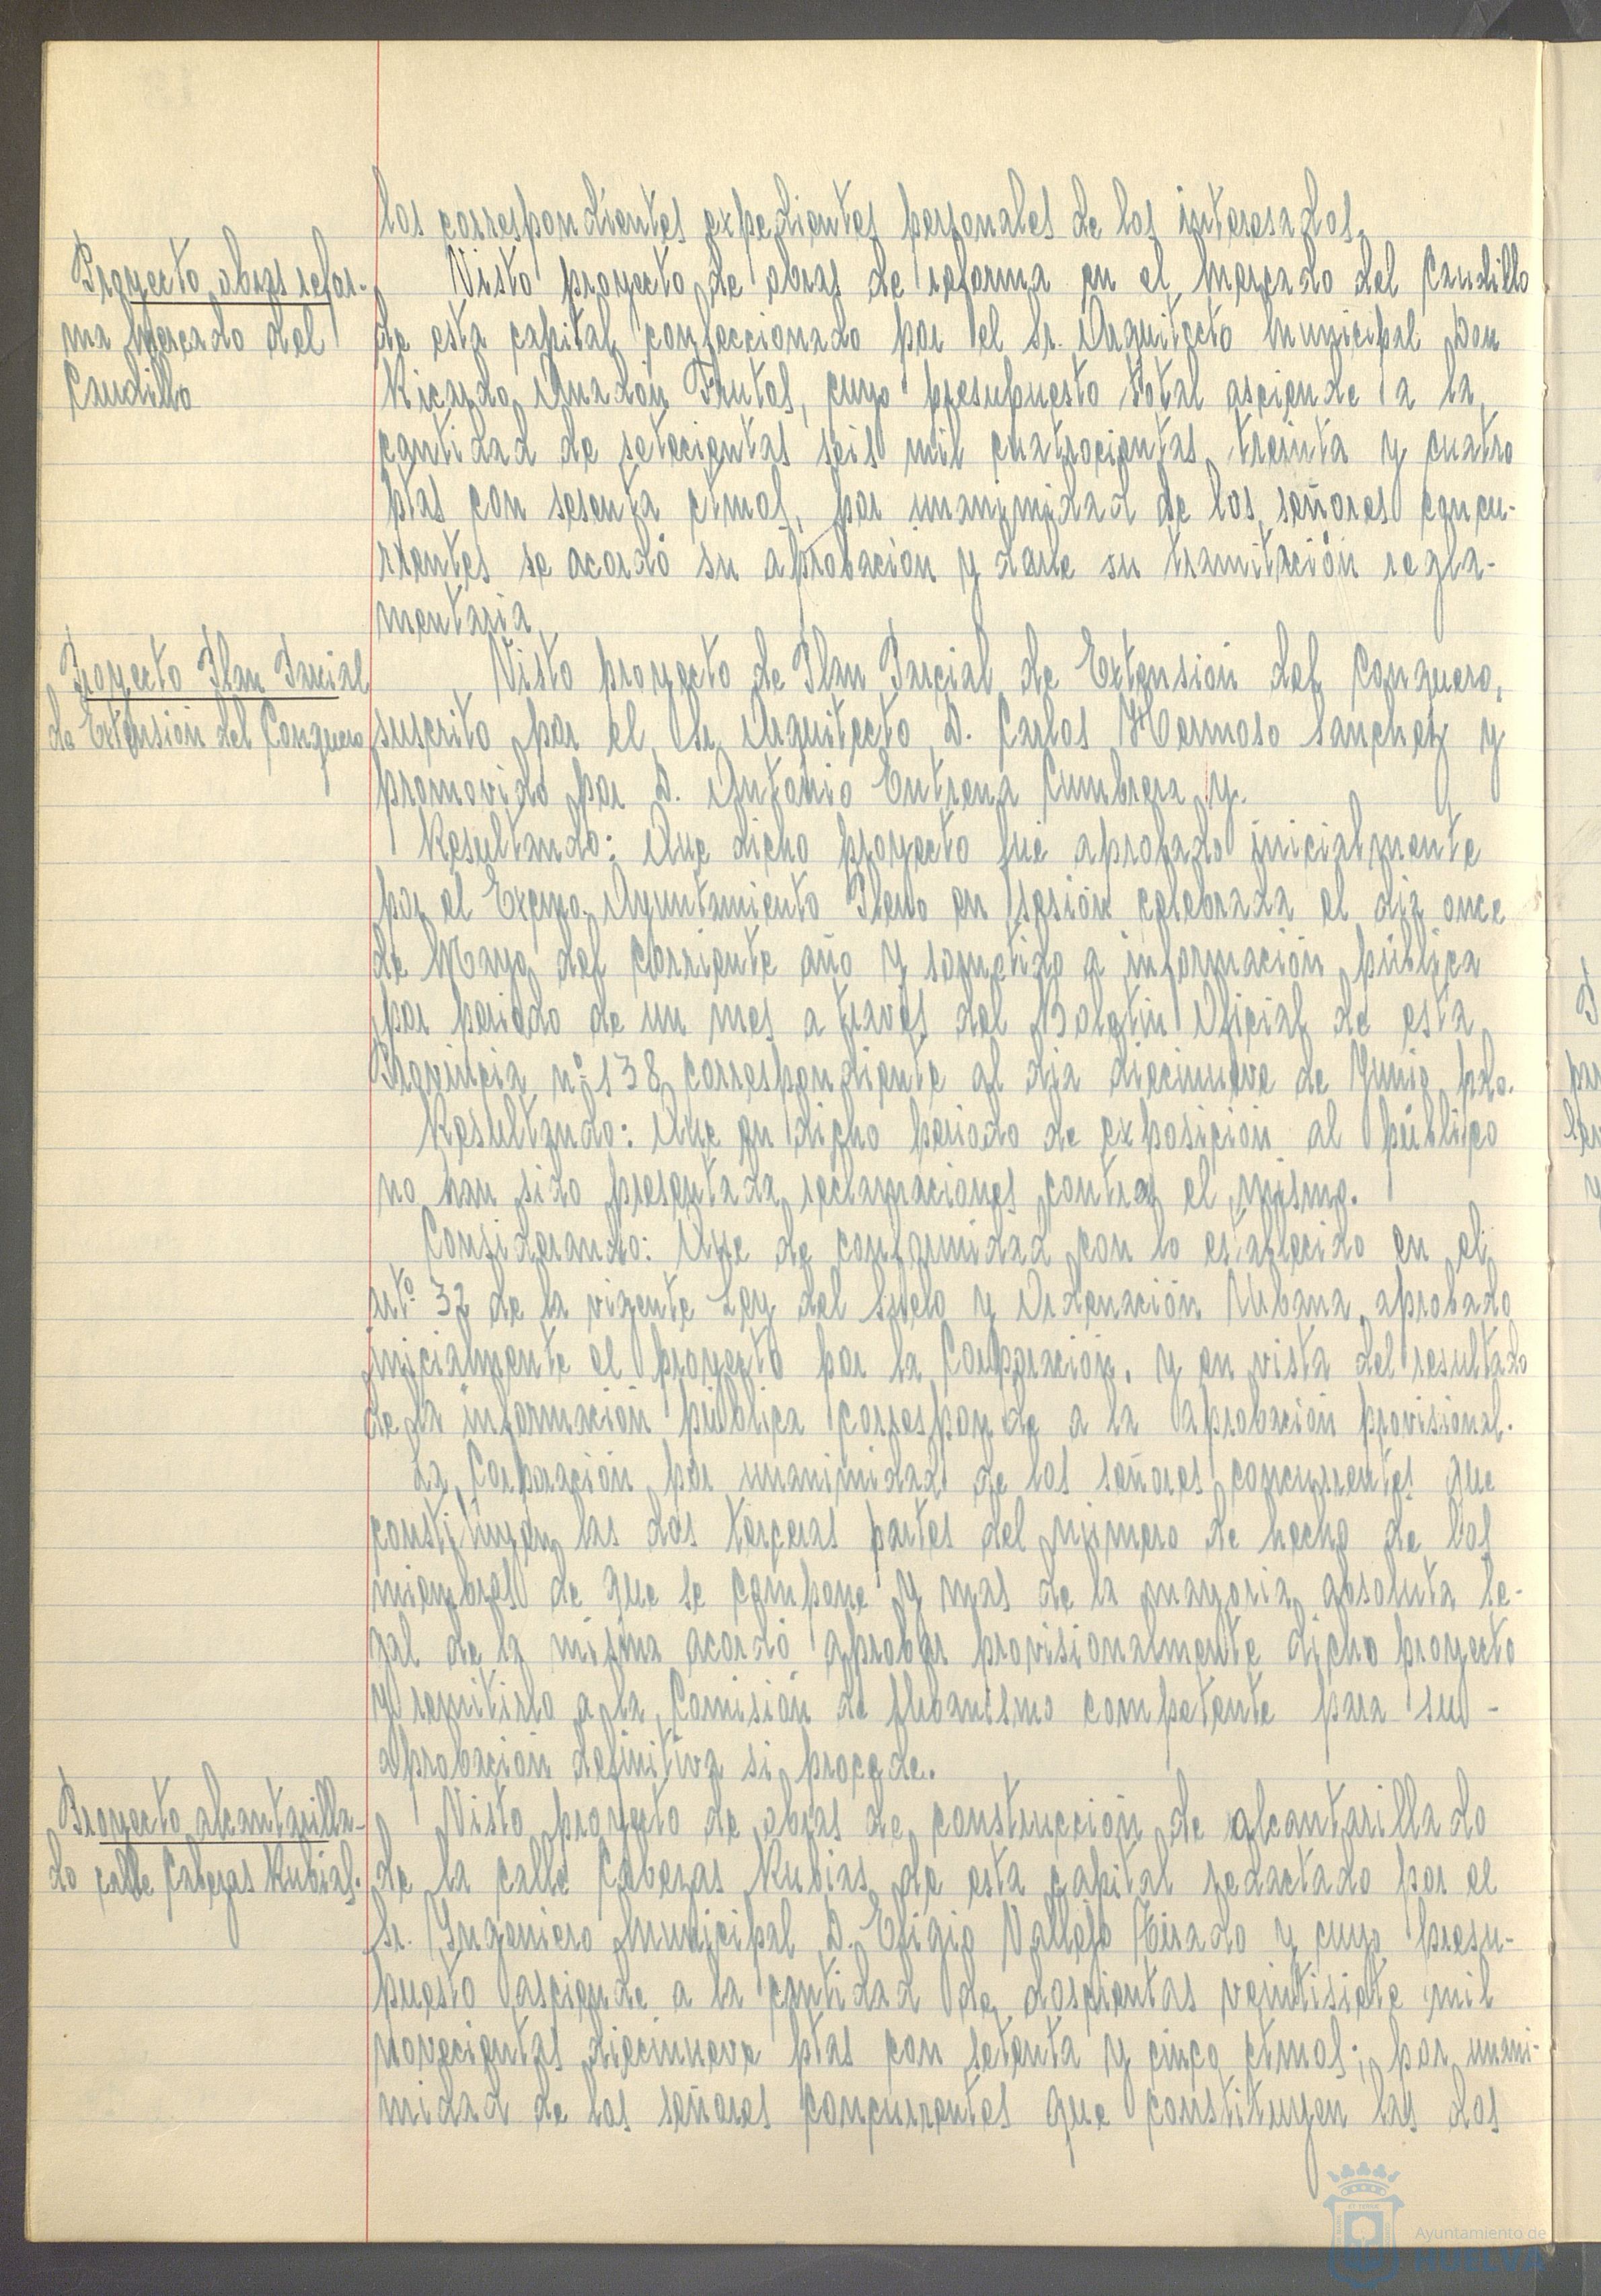 los correspondientes expedientes personales de los interesados.
Proyecto obras refor-
ma Mercado del
Caudillo
Visto proyecto de obras de reforma en el Mercado del Caudillo
de esta capital confeccionado por el Sr. Arquitecto Municipal Don
Ricardo Anadón Frutos, cuyo presupuesto total asciende a la
cantidad de setecientas seis mil cuatrocientas treinta y cuatro
ptas con sesenta ctmos, por unanimidad de los señores concu-
rrentes se acordó su aprobación y darle su tramitación regla-
mentaria
Proyecto Plan Parcial
de Extensión del Conquero
Visto proyecto de Plan Parcial de Extensión del Conquero,
suscrito por el Sr. Arquitecto D. Carlos Hermoso Sanchez y
promovido por D. Antonio Entrena Cumbrera y.
Resultando: Que dicho proyecto fué aprobado inicialmente
por el Excmo. Ayuntamiento Pleno en sesión celebrada el dia once
de Mayo del corriente año y sometido a información pública
por periodo de un mes a través del Boletin Oficial de esta
Provincia nº 138 correspondiente al dia diecinueve de Junio pdo.
Resultando: Que en dicho periodo de exposición al público
no han sido presentada reclamaciones contra el mismo.
Considerando: Que de conformidad con lo establecido en el
artº 32 de la vigente Ley del Suelo y Ordenación Urbana, aprobado
inicialmente el proyecto por la Corporación, y en vista del resultado
de la información pública corresponde a la aprobación provisional.
La Corporación por unanimidad de los señores concurrentes que
constituyen las dos terceras partes del número de hecho de los
miembros de que se compone y mas de la mayoria absoluta le-
gal de la misma acordó aprobar provisionalmente dicho proyecto
y remitirlo a la Comisión de Urbanismo competente para su -
aprobación definitiva si procede.
Proyecto alcantarilla-
do calle Cabezas Rubias.
Visto proyecto de obras de construcción de alcantarillado
de la calle Cabezas Rubias de esta capital redactado por el
Sr. Ingeniero Municipal D. Eligio Vallejo Tirado y cuyo presu-
puesto asciende a la cantidad de doscientas veintisiete mil
novecientas diecinueve ptas con setenta y cinco ctmos; por unani-
midad de los señores concurrentes que constituyen las dos
Ayuntamiento de
HUELVA